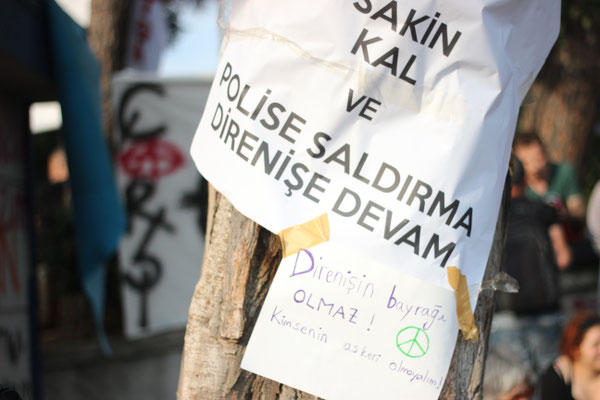 SAKİN
KAL
VE
POLİSE SALDIRMA
DİRENİŞE DEVAM
Direnişin bayrağı
OLMAZ!
Kimsenin askeri olmayalım!